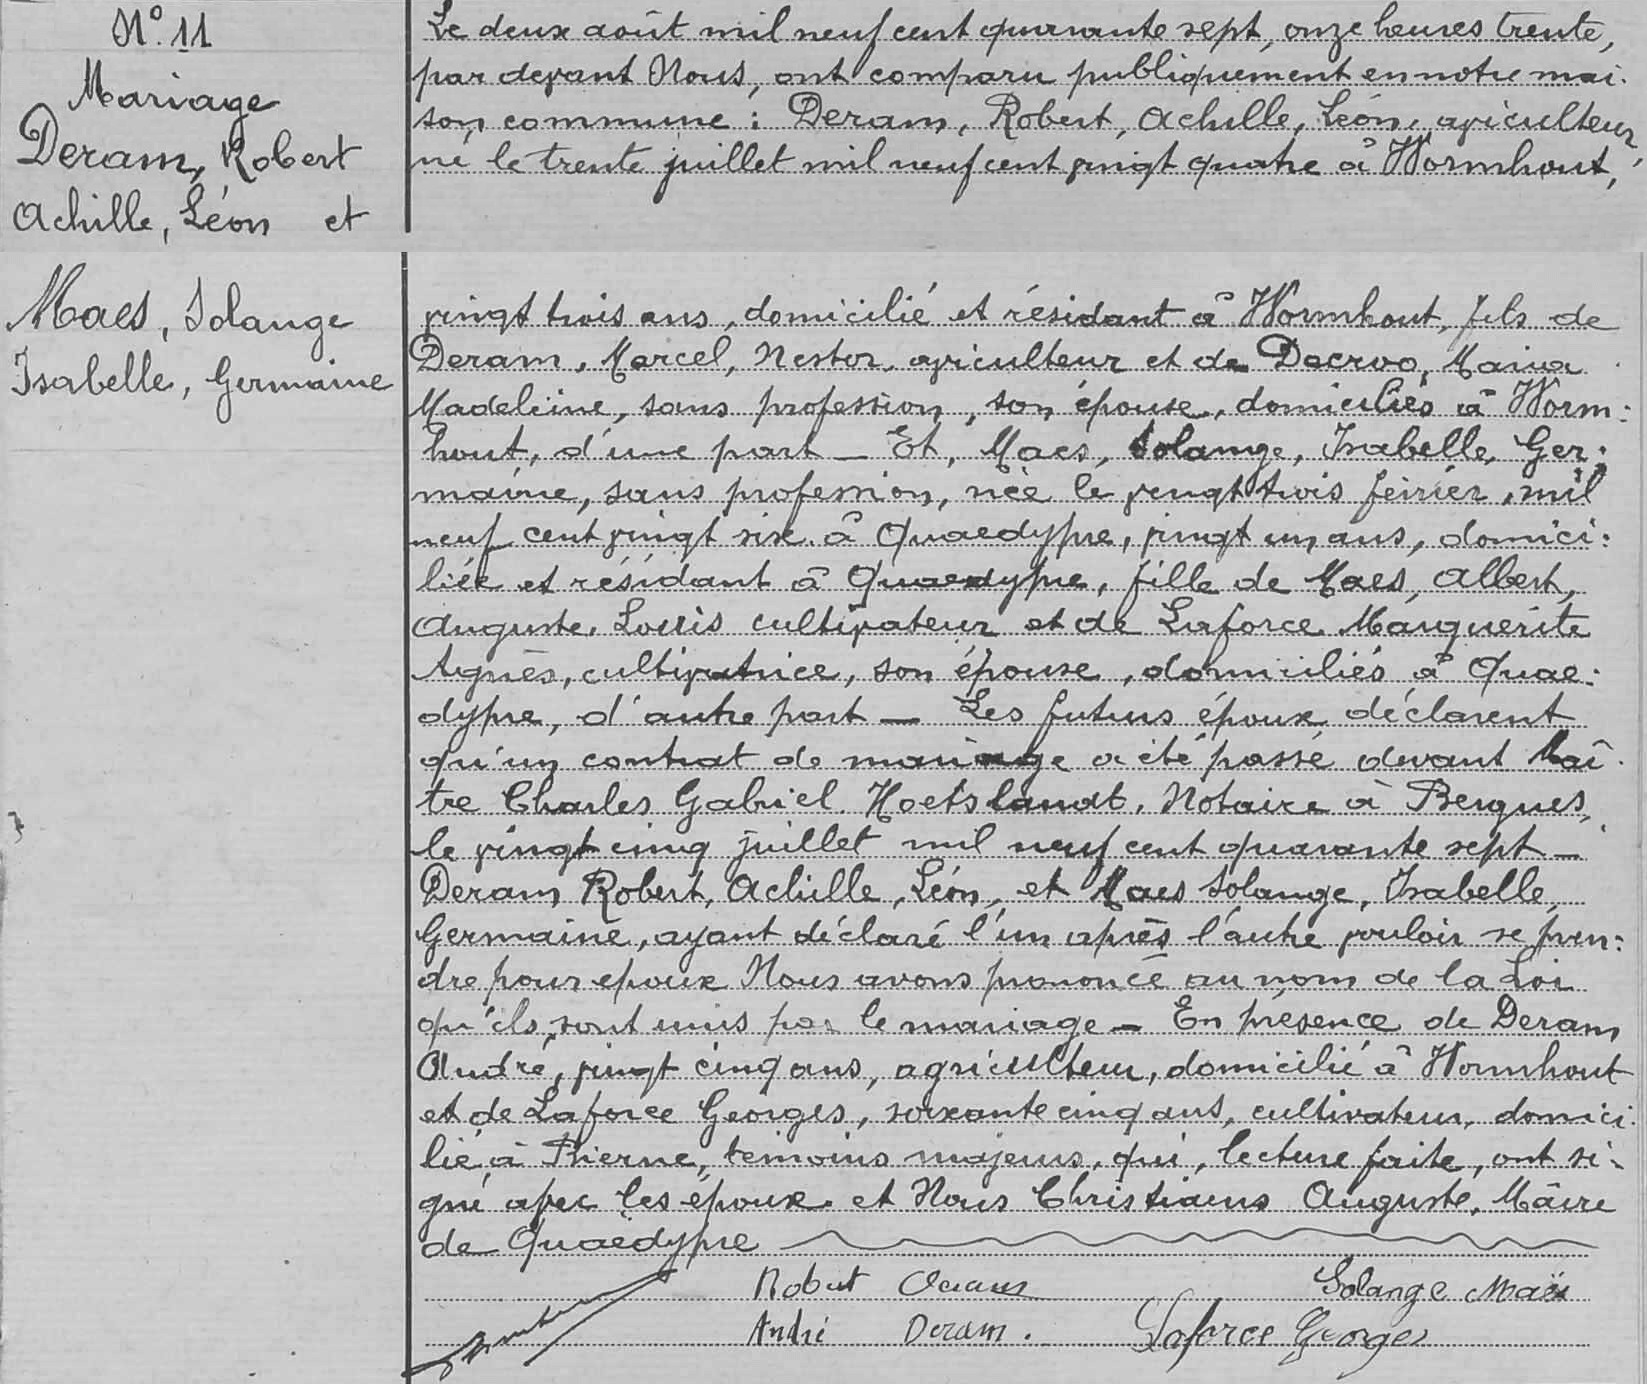 N° 11
Mariage
Deram, Robert
Achille, Léon et
Le deux août mil neuf cent quarante sept, onze heures trente,
par devant Nous, ont comparu publiquement en notre mai-
son commune : Deram, Robert, Achille, Léon, apiculteur,
né le trente juillet mil neuf cent vingt quatre à Wormhout,
Maes, Solange
Isabelle, Germaine
vingt trois ans, domicilié et résidant à Wormhout, fils de
Deram, Marcel, Nestor, apiculteur et de Decroo, Maria
Madeleine, sans profession, son épouse, domiciliés à Worm:
hout, d'une part — Et, Maes, Solange, Isabelle, Ger:
maine, sans profession, née le vingt trois février, mil
neuf cent vingt six à Quaedypre, vingt un ans, domici:
liée et résidant à Quaedypre, fille de Maes, Albert,
Auguste, Louis cultivateur et de Laforce Marguerite
Agnès, cultivatrice, son épouse, domiciliés à Quae:
dypre, d'autre part — Les futurs époux déclarent
qu'un contrat de mariage a été passé devant Maî-
tre Charles Gabriel Hoetslandt, Notaire à Bergues,
le vingt cinq juillet mil neuf cent quarante sept —
Deram Robert, Achille, Léon, et Maes Solange, Isabelle,
Germaine, ayant déclaré l'un après l'autre vouloir se pren:
dre pour epoux Nous avons prononcé au nom de la Loi
qu'ils sont unis par le mariage — En présence de Deram
André, vingt cinq ans, agriculteur, domicilié à Wormhout
et de Laforce Georges, soixante cinq ans, cultivateur, domici-
lié à Bierne, témoins majeurs, qui, lecture faite, ont si-
gné avec les époux et Nous Christiaens Auguste, Maire
de Quaedypre
Robert Deram Solange Maës
André Deram. Laforce Georges